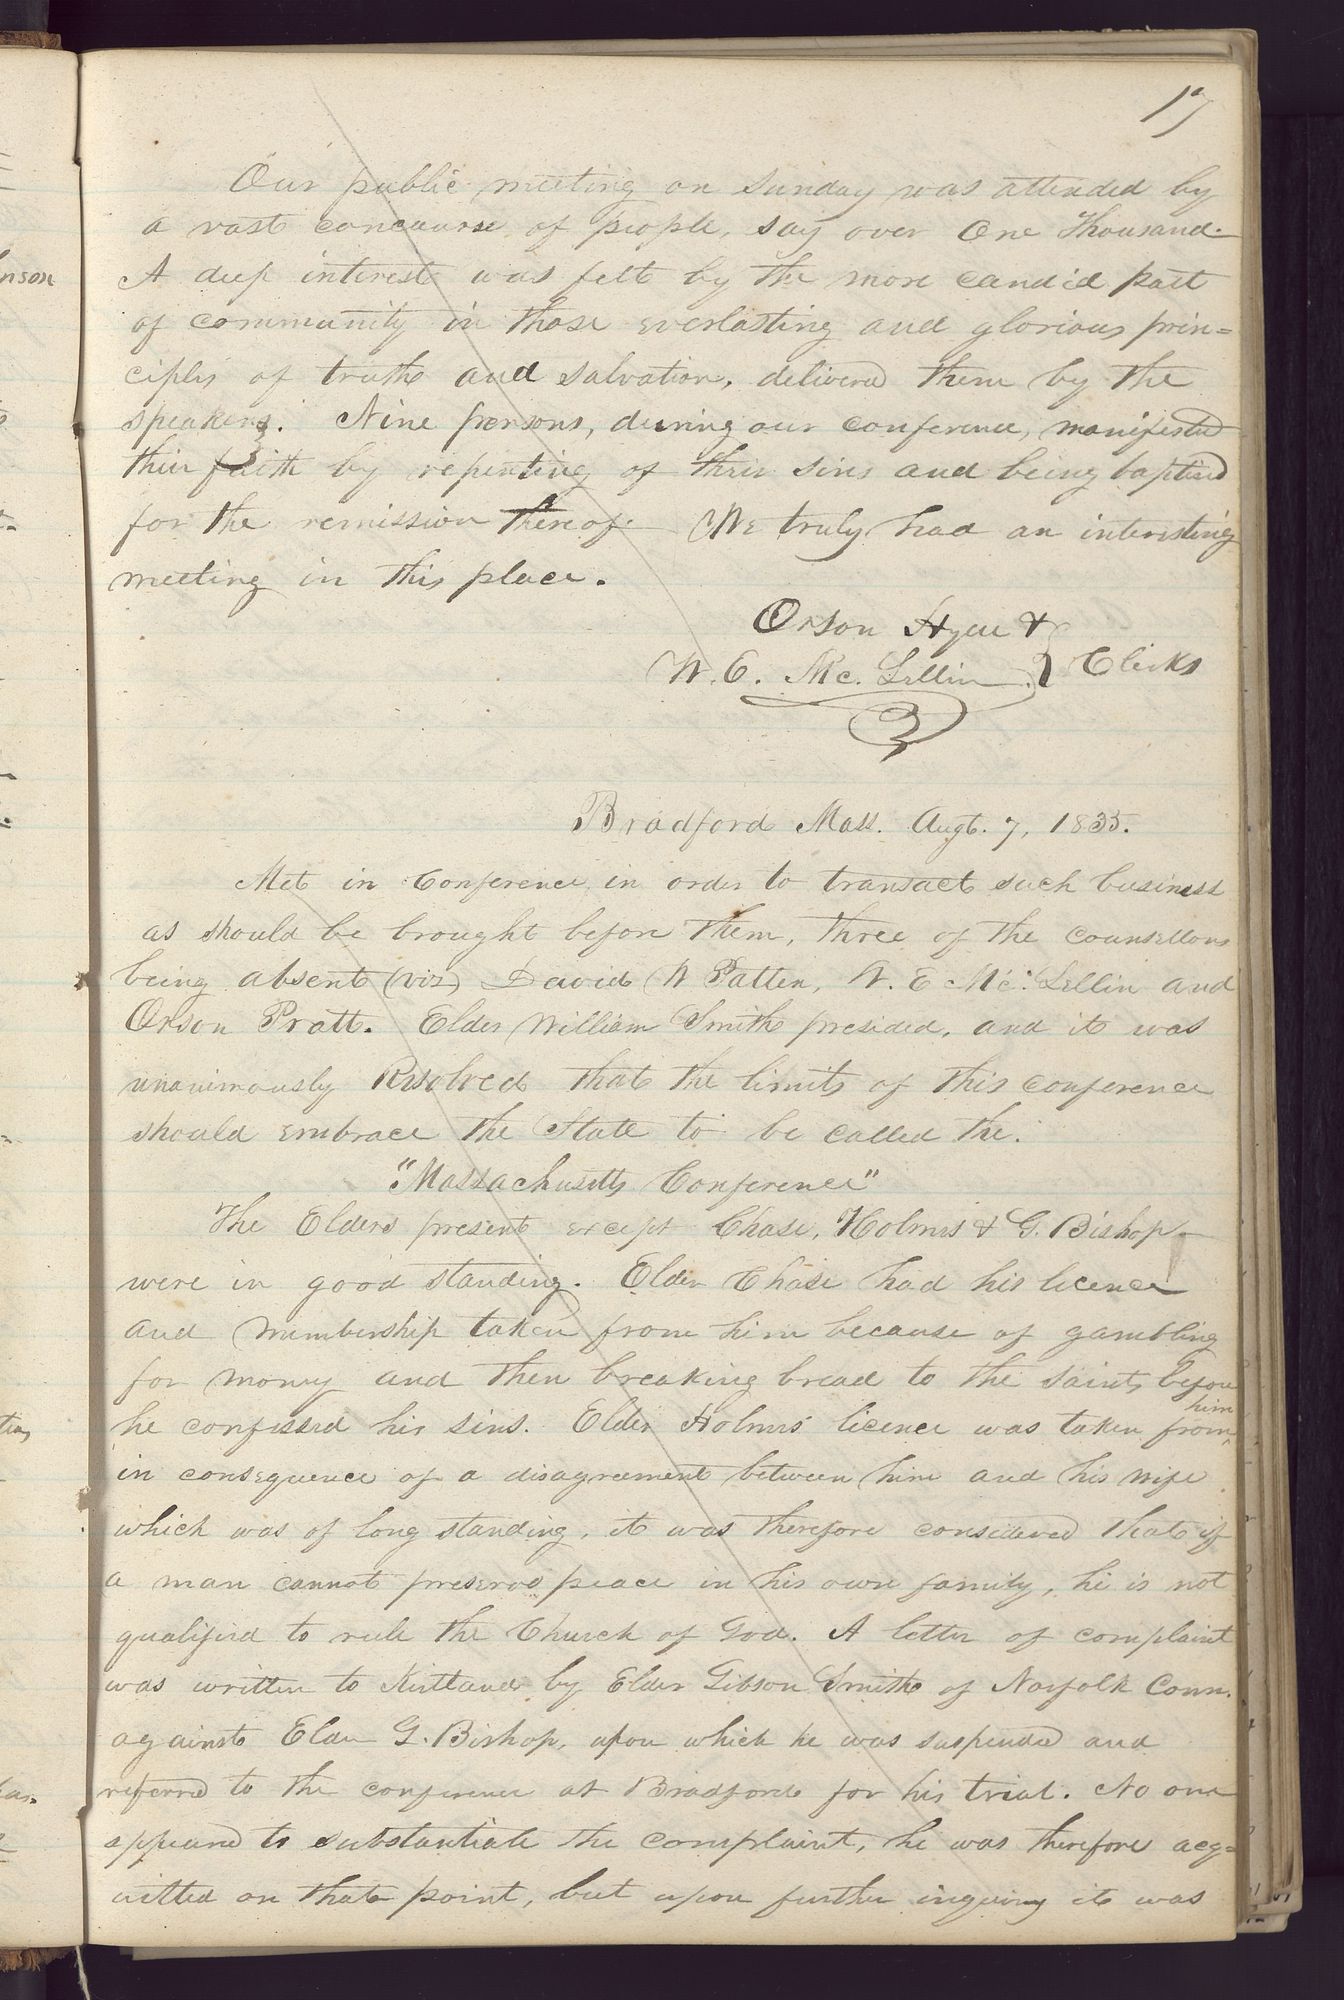 17
Our public meeting on Sunday was attended by
a vast concourse of people, say over One Thousand.
A deep interest was felt by the more candid part
of community in those everlasting and glorious prin=
ciples of truth and salvation, delivered them by the
speakers. Nine persons, during our conference, manifested
their faith by repenting of their sins and being baptised
for the remission thereof. We truly had an interesting
meeting in this place.
Orson Hyde &
W. E. Mc. Lellin } Clerks
Bradford Mass. Augt. 7, 1835.
Met in Conference in order to transact such business
as should be brought before them, three of the counsellors
being absent (viz) David W Patten, W. E. Mc. Lellin and
Orson Pratt. Elder William Smith presided, and it was
unanimously Resolved that the limits of this conference
should embrace the State to be called the.
"Massachusetts Conference"
The Elders present except Chase, Holmes & G. Bishop
were in good standing. Elder Chase had his licence
and membership taken from him because of gambling
for money and then breaking bread to the saints before
he confessed his sins. Elder Holmes licence was taken from him
in consequence of a disagreement between him and his wife
which was of long standing, it was therefore considered that if
a man cannot preserve peace in his own family, he is not
qualified to rule the Church of God. A letter of complaint
was written to Kirtland by Elder Gibson Smith of Norfolk Conn.
against Elder G. Bishop, upon which he was suspended and
referred to the conference at Bradford for his trial. No one
appeared to substantiate the complaint, he was therefore acq=
uitted on that point, but upon further inquiry it was